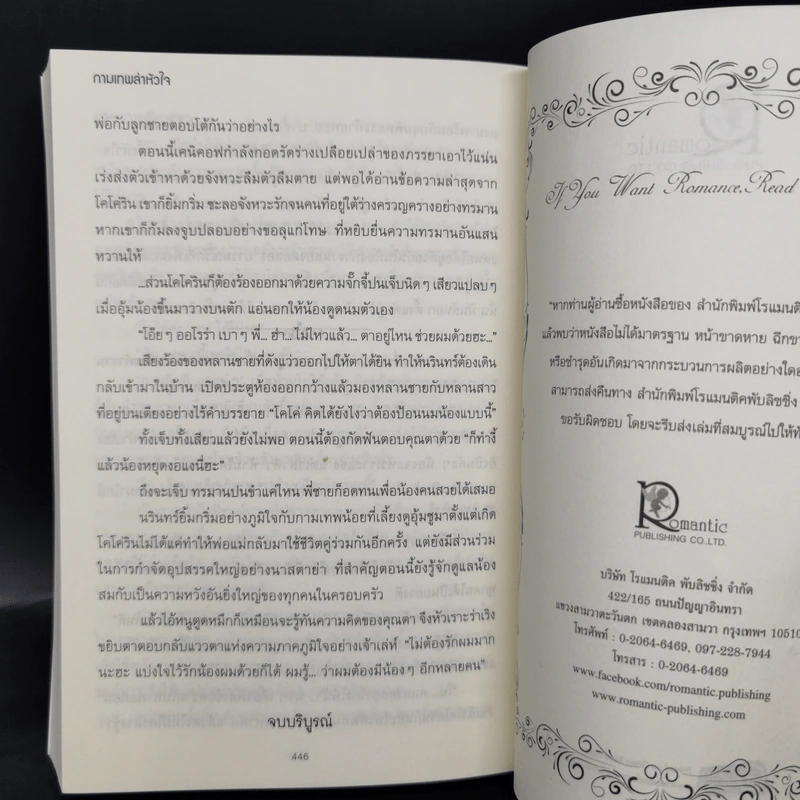 กามเทพล่าหัวใจ
พ่อกับลูกชายตอบโต้กันว่าอย่างไร
ตอนนี้เคนิคอฟกำลังกอดรัดร่างเปลือยเปล่าของภรรยาเอาไว้แน่น
เร่งส่งตัวเข้าหาด้วยจังหวะลืมตัวลืมตาย แต่พอได้อ่านข้อความล่าสุดจาก
โคโคริน เขาก็ยิ้มกริ่ม ชะลอจังหวะรักจนคนที่อยู่ใต้ร่างครวญครางอย่างทรมาน
หากเขาก็ก้มลงจูบปลอบอย่างขอลุแก่โทษ ที่หยิบยื่นความทรมานอันแสน
หวานให้
...ส่วนโคโครินก็ต้องร้องออกมาด้วยความจั๊กจี้ปนเจ็บนิดๆ เสียวแปลบๆ
เมื่ออุ้มน้องขึ้นมาวางบนตัก แอ่นอกให้น้องดูดนมตัวเอง
“โอ๊ยๆ ออโรร่า เบาๆ พี่... ฮ่า... ไม่ไหวแล้ว... ตาอยู่ไหน ช่วยผมด้วยฮะ...”
เสียงร้องของหลานชายที่ดังแว่วออกไปให้ตาได้ยิน ทำให้นรินทร์ต้องเดิน
กลับเข้ามาในบ้าน เปิดประตูห้องออกกว้างแล้วมองหลานชายกับหลานสาว
ที่อยู่บนเตียงอย่างไร้คำบรรยาย “โคโค่ คิดได้ยังไงว่าต้องป้อนนมน้องแบบนี้”
ทั้งเจ็บทั้งเสียวแล้วยังไม่พอ ตอนนี้ต้องกัดฟันตอบคุณตาด้วย “ก็ทำงี้
แล้วน้องหยุดงอแงนี่ฮะ”
ถึงจะเจ็บ ทรมานปนขำแค่ไหน พี่ชายก็อดทนเพื่อน้องคนสวยได้เสมอ
นรินทร์ยิ้มกริ่มอย่างภูมิใจกับกามเทพน้อยที่เลี้ยงดูอุ้มชูมาตั้งแต่เกิด
โคโครินไม่ได้แค่ทำให้พ่อแม่กลับมาใช้ชีวิตคู่ร่วมกันอีกครั้ง แต่ยังมีส่วนร่วม
ในการกำจัดอุปสรรคใหญ่อย่างนาสตาย่า ที่สำคัญตอนนี้ยังรู้จักดูแลน้อง
สมกับเป็นความหวังอันยิ่งใหญ่ของทุกคนในครอบครัว
แล้วไอ้หนูตูดหมึกก็เหมือนจะรู้ทันความคิดของคุณตา จึงหัวเราะร่าเริง
ขยิบตาตอบกลับแววตาแห่งความภาคภูมิใจอย่างเจ้าเล่ห์ “ไม่ต้องรักผมมาก
นะฮะ แบ่งใจไว้รักน้องผมด้วยก็ได้ ผมรู้... ว่าผมต้องมีน้องๆ อีกหลายคน”
จบบริบูรณ์
446
If You Want Romance, Read
“หากท่านผู้อ่านซื้อหนังสือของ สำนักพิมพ์โรแมนติ
แล้วพบว่าหนังสือไม่ได้มาตรฐาน หน้าขาดหาย ฉีกขา
หรือชำรุดอันเกิดมาจากกระบวนการผลิตอย่างใดอ
สามารถส่งคืนทาง สำนักพิมพ์โรแมนติคพับลิชชิ่ง
ขอรับผิดชอบ โดยจะรีบส่งเล่มที่สมบูรณ์ไปให้ท
Romantic
PUBLISHING CO.,LTD.
บริษัท โรแมนติค พับลิชชิ่ง จำกัด
422/165 ถนนปัญญาอินทรา
แขวงสามวาตะวันตก เขตคลองสามวา กรุงเทพฯ 10510
โทรศัพท์ : 0-2064-6469, 097-228-7944
โทรสาร : 0-2064-6469
www.facebook.com/romantic.publishing
www.romantic-publishing.com